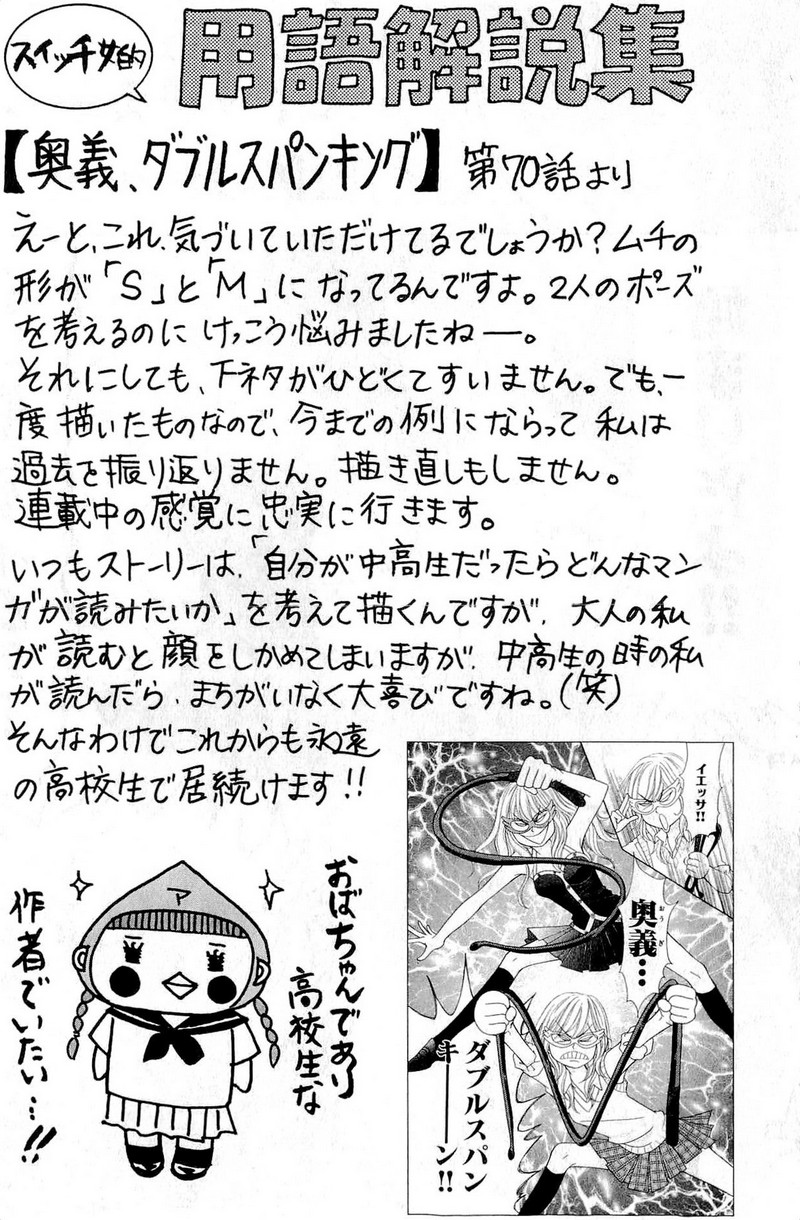 スイッチ女的
用語解説集
【奥義、ダブルスパンキング】 第70話より
えーと、これ、気づいていただけてるでしょうか？ムチの
形が「S」と「M」になってるんですよ。2人のポーズ
を考えるのに けっこう悩みましたねー。
それにしても、下ネタがひどくてすいません。でも、一
度描いたものなので、今までの例にならって 私は
過去を振り返りません。描き直しもしません。
連載中の感覚に忠実に行きます。
いつもストーリーは、「自分が中高生だったらどんなマン
ガが読みたいか」を考えて描くんですが、大人の私
が読むと顔をしかめてしまいますが、中高生の時の私
が読んだら、まちがいなく大喜びですね。(笑)
そんなわけでこれからも永遠
の高校生で居続けます!!
イエッサ!!
奥義…
おうぎ
ダブルスパン
キーーン!!
ア
おばちゃんであり
高校生な
作者でいたい…!!